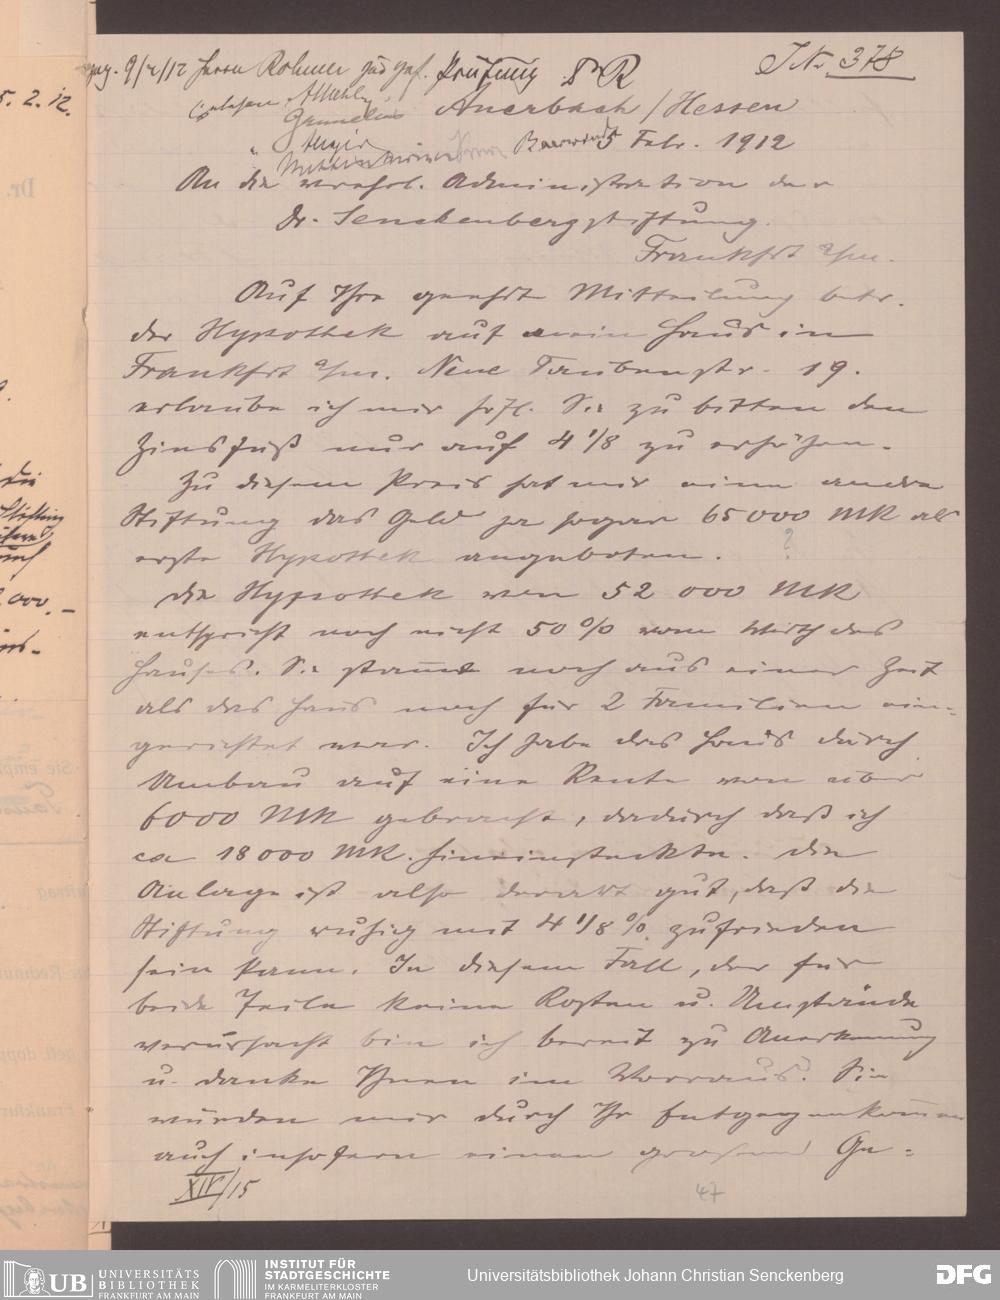 9/2/12 Herrn Rohmer zur gef. Prüfung Dr R
J No 378
gelesen
Auerbach / Hessen
5 Febr. 1912
An die verehrl. Administration der
Dr. Senckenbergstiftung.
Frankfrt a/m.
Auf Ihre geehrte Mitteilung betr.
der Hypothek auf mein Haus in
Frankfrt a/m. Neue Taubenstr. 19.
erlaube ich mir hfl. Sie zu bitten den
Zinsfuß nur auf 4 1/8 zu erhöhen.
Zu diesem Preis hat mir eine andre
Stiftung das Geld ja sogar 65 000 MK als
erste Hypothek angeboten. ?
Die Hypothek von 52 000 MK
entspricht noch nicht 50 % vom Werth des
Hauses. Sie stammt noch aus einer Zeit
als das Haus noch für 2 Familien ein-
gerichtet war. Ich habe das Haus durch
Umbau auf eine Rente von über
6000 MK gebracht, dadurch daß ich
ca 18 000 MK. hineinsteckte. Die
Anlage ist also derart gut, daß die
Stiftung ruhig mit 4 1/8 % zufrieden
sein kann. In diesem Fall, der für
beide Teile keine Kosten u. Umstände
verursacht bin ich bereit zu Anerkennung
u. danke Ihnen im Vorraus. Sie
würden mir durch Ihr Entgegenkommen
auch insofern einen grossen Ge-
XIV/15
47
5. 2. 12.
UB UNIVERSITÄTS
BIBLIOTHEK
FRANKFURT AM MAIN
INSTITUT FÜR
STADTGESCHICHTE
IM KARMELITERKLOSTER
FRANKFURT AM MAIN
Universitätsbibliothek Johann Christian Senckenberg
DFG